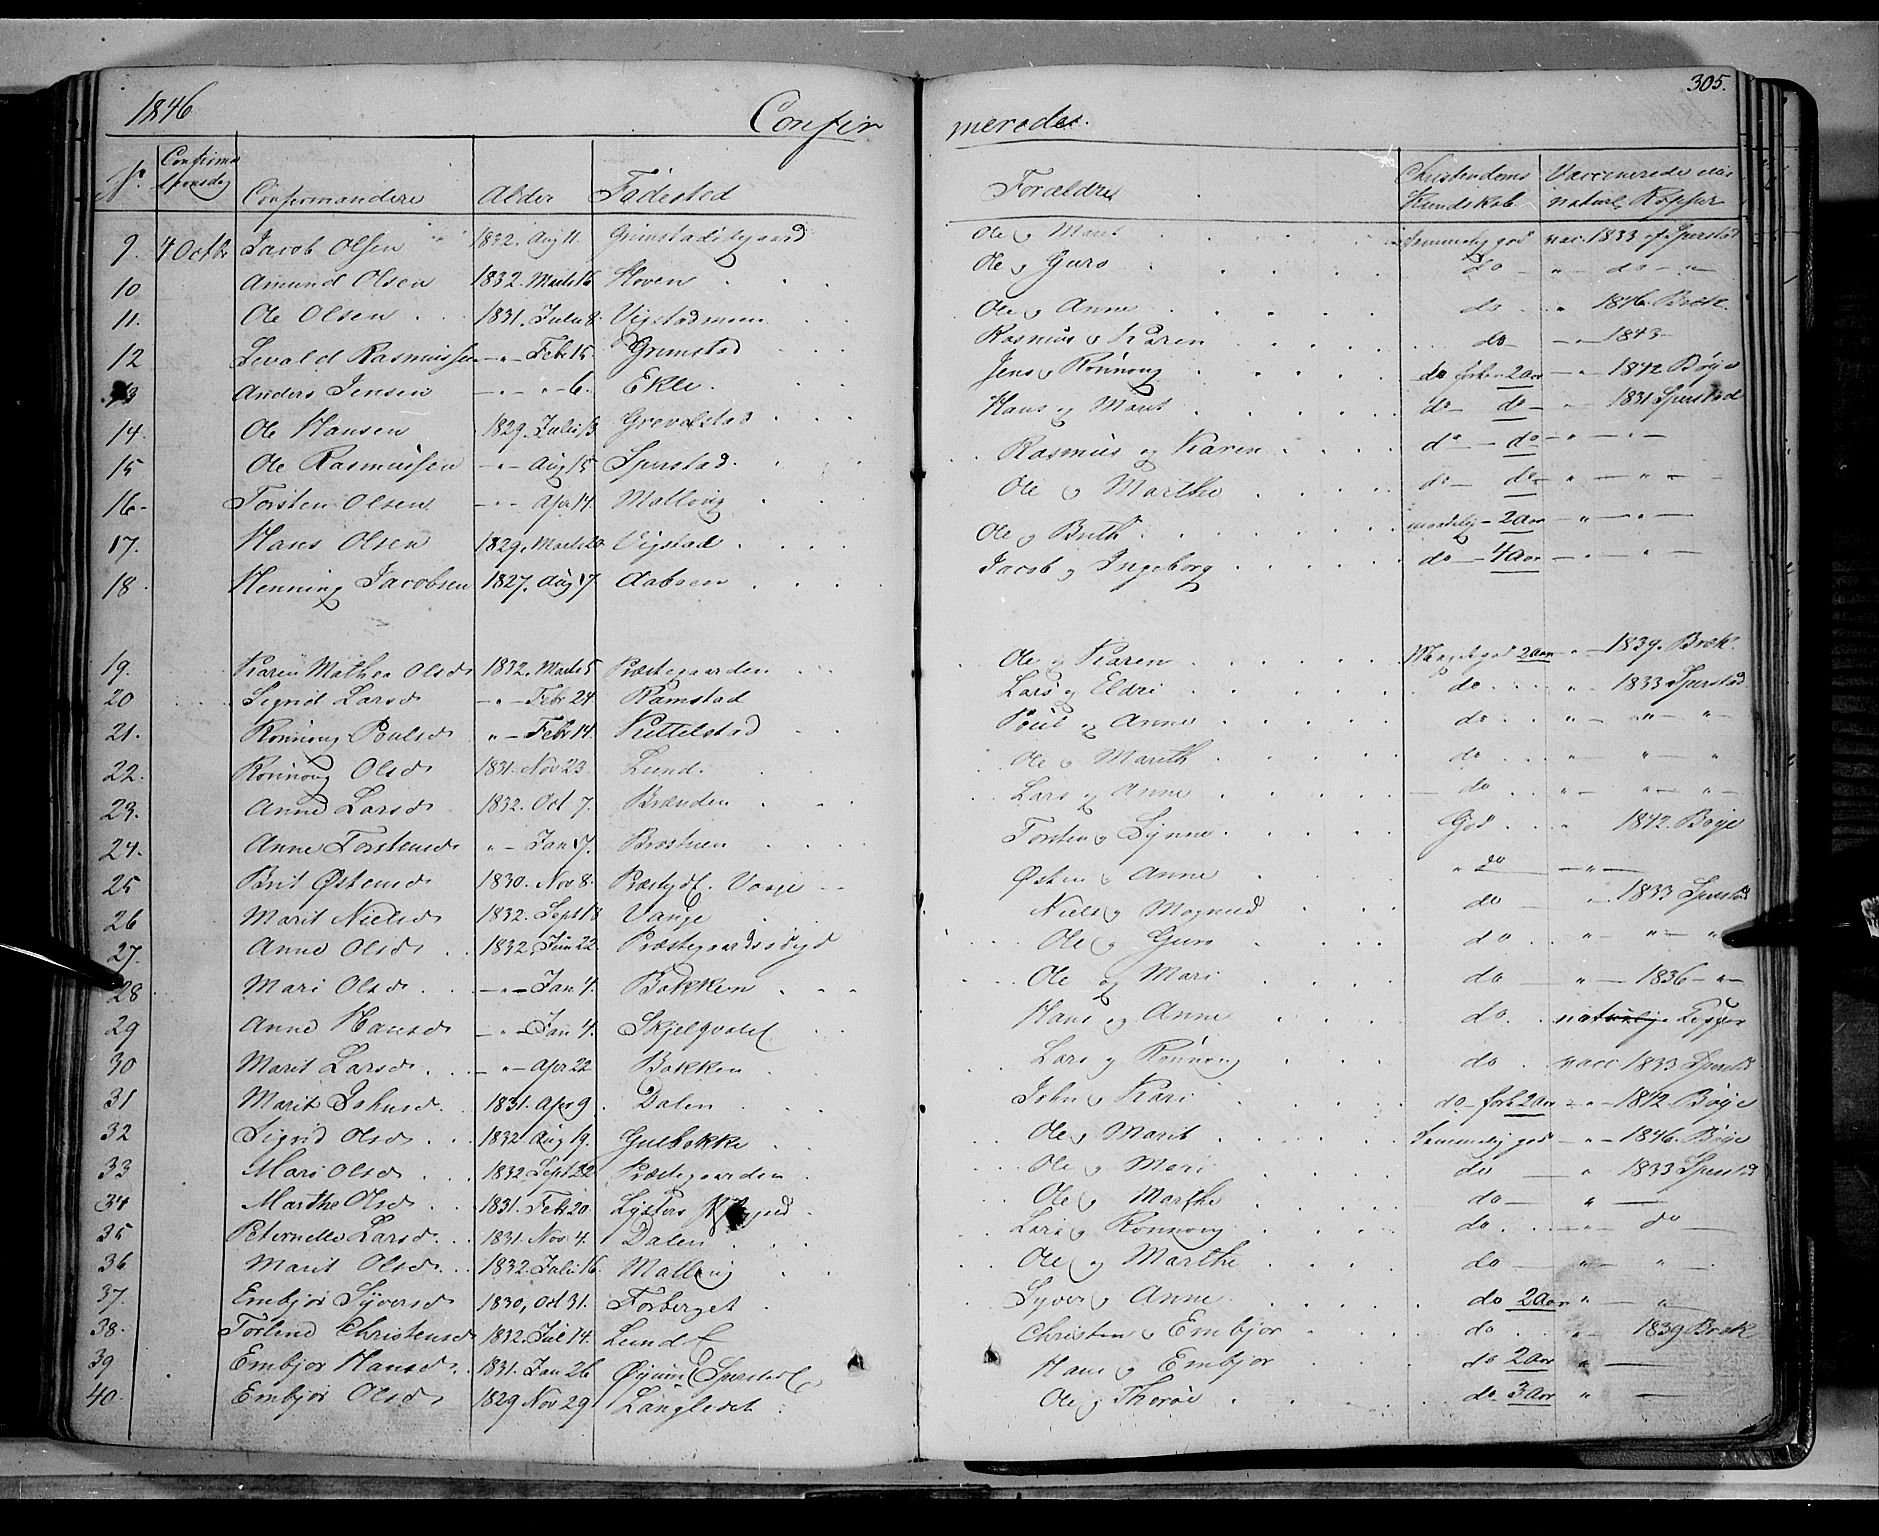 1846 Confir merede. 305.
No. Confirmations dag Confirmandere Alder Fødested Forældre Christendoms Kundskab Vaccinerede eller naturl. Kopper
9. 4 Octbr Jacob Olsen 1832. Aug 11. Ole og Marit temmelig god vac. 1833 af Sperstad
10 Amund Olsen 1832. Marts 16 Hoven Ole og Guro do do
11. Ole Olsen 1831. Julii 8. Vigstadmoen Ole og Anne do 1846. Bræk
12 Sevald Rasmussen Febr 15. Grimstad Rasmus og Karen do 1843
13 Anders Jensen 6. Ekle Jens og Rønnoug do 2 Aar 1842 Bøye
14. Ole Hansen 1829. Julii 13. Grevelstad Hans og Marit do do 1831 Sperstad
15 Ole Rasmussen Aug 15 Sperstad. Rasmus og Karen do do
16. Torsten Olsen Apr 14. Malling Ole og Marthe do do
17. Hans Olsen 1829. Marts 20 Vigstad Ole og Brith maadelig 2 Aar
18. Henning Jacobsen 1827. Aug 17. Aaboen Jacob og Ingeborg do 4 Aar
19. Karen Mathea Olsd. 1832. Marts 5 Præstegaarden Ole og Karen Meget god 2 Aar 1839. Bræk.
20 Sigrid Larsd. Febr 24 Ramstad Lars og Eldri do 1833 Sperstad
21. Rønnoug Poulsd. Febr 14. Kittelstad Poul og Anne do
22. Rønnoug Olsd. 1831. Nov 23. Lund. Ole og Marith do
23. Anne Larsd. 1832. Oct 7. Brænden Lars og Anne do
24. Anne Torstensd. Jan 17. Bræstuen Torsten og Synne God 1842. Bøye
25 Brit Østensd. 1830. Nov 8. Østen og Anne do
26 Marit Nielsd. 1832. Sept 18 Vange Niels og Magnild do 1833 Sperstad
27. Anne Olsd. 1832. Jun 22. Ole og Guro do
28 Mari Olsd. Jan 4. Bakken Ole og Mari do 1836
29 Anne Hansd. Jan 4. Hans og Anne do. naturlige Kopper
30 Marit Larsd. Apr 22 Bakken Lars og Rønnoug do vacc 1833 Sperstad
31 Marit Johnsd. 1831. Apr 9. Dalen John og Kari do forb 2 Aar 1842. Bøye
32 Sigrid Olsd. 1832 Aug 19. Gulbakke Ole og Marit temmelig god 1846. Bøye
33 Mari Olsd. 1832 Sept 22 Præstegaarden Ole og Mari do 1833 Sperstad
34 Marthe Olsd. 1831. Feb 20. Lysters Ole og Marthe do
35 Peternelle Larsd. 1831. Nov 4. Dalen Lars og Rønnoug do. do
36 Marit Olsd. 1832. Julii 16. Malling Ole og Marthe do
37. Embjør Syversd. 1830, Oct 31. Forberget Syver og Anne do 2 Aar
38. Torlind Christensd. 1832. Jul 14. Lund Christen og Embjør do 1839 Bræk
39 Embjør Hansd. 1831. Jan 26 Hans og Embjør do 2 Aar
40. Embjør Olsd. 1829 Nov 29 Langledet Ole og Thorøe do. 3 Aar